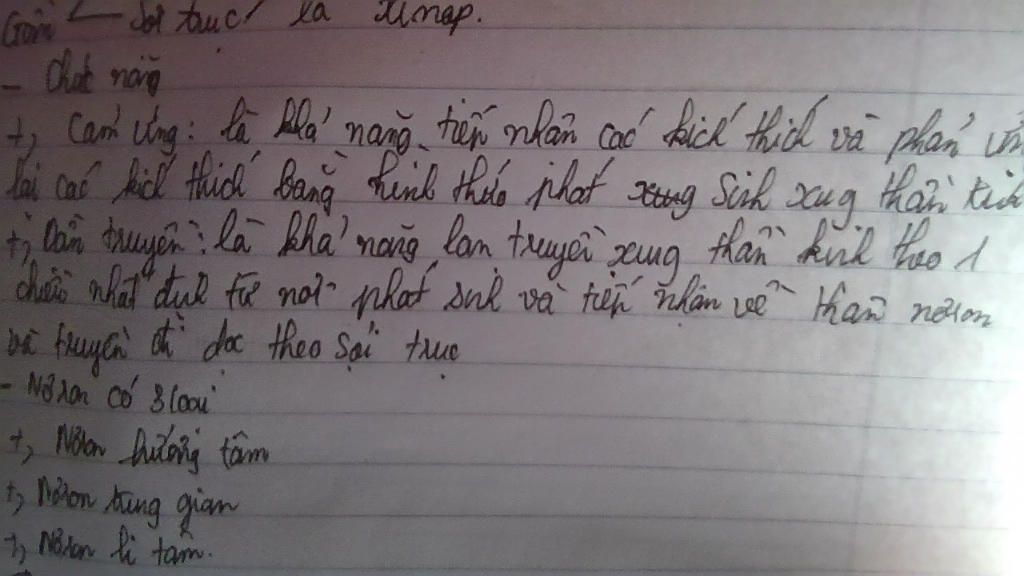 Gồm sợi trục là xinap.
- Chức năng
+, Cảm ứng: là khả năng tiếp nhận các kích thích và phản ứn
lại các kích thích bằng hình thức phát xung sinh xug thần kinh
+, Dẫn truyền: là khả năng lan truyền xung thần kinh theo 1
chiều nhất định từ nơi phát sinh và tiếp nhận về thân nơron
và truyền đi dọc theo sợi trục
- Nơron có 3 loại
+, Nơron hướng tâm
+, Nơron trung gian
+, Nơron li tâm.